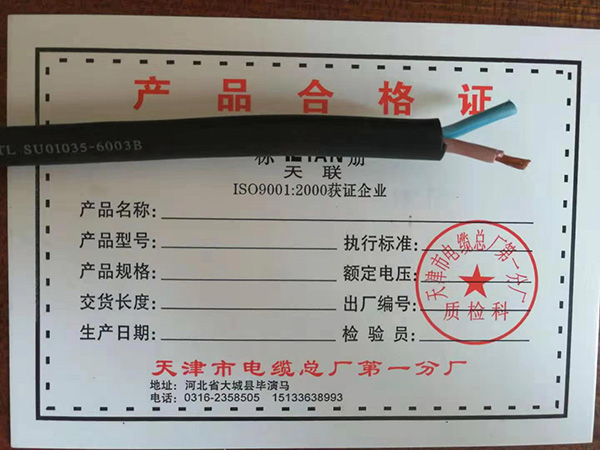 产品合格证
TL SU01035-6003B
天联
ISO9001:2000获证企业
产品名称:
产品型号: 执行标准:
产品规格: 额定电压:
交货长度: 出厂编号:
生产日期: 检验员:
天津市电缆总厂第一分厂
质检科
天津市电缆总厂第一分厂
地址: 河北省大城县毕演马
电话: 0316-2358505 15133638993